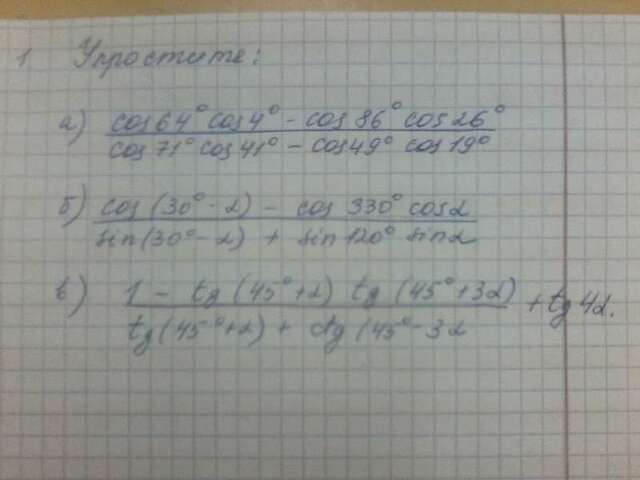 1 Упростите:
а) cos 64° cos 4° - cos 86° cos 26°
cos 71° cos 41° - cos 49° cos 19°
б) cos (30° - α) - cos 330° cos α
sin (30° - α) + sin 120° sin α
в) 1 - tg (45° + α) tg (45° + 3α) + tg 4α.
tg (45° + α) + ctg (45° - 3α